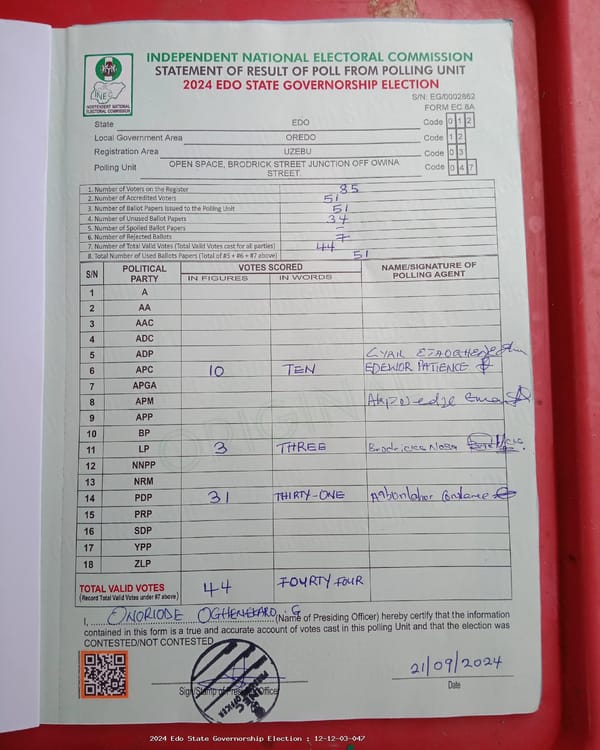 INDEPENDENT NATIONAL ELECTORAL COMMISSION
STATEMENT OF RESULT OF POLL FROM POLLING UNIT
2024 EDO STATE GOVERNORSHIP ELECTION
INEC
INDEPENDENT NATIONAL ELECTORAL COMMISSION
S/N: EG/0002862
FORM EC 8A
State EDO Code 0 1 2
Local Government Area OREDO Code 1 2
Registration Area UZEBU Code 0 3
Polling Unit OPEN SPACE, BRODRICK STREET JUNCTION OFF OWINA STREET. Code 0 4 7
1. Number of Voters on the Register 85
2. Number of Accredited Voters 51
3. Number of Ballot Papers Issued to the Polling Unit 51
4. Number of Unused Ballot Papers 34
5. Number of Spoiled Ballot Papers –
6. Number of Rejected Ballots 7
7. Number of Total Valid Votes (Total Valid Votes cast for all parties) 44
8. Total Number of Used Ballots Papers (Total of #5 + #6 + #7 above) 51
S/N POLITICAL PARTY VOTES SCORED NAME/SIGNATURE OF POLLING AGENT
IN FIGURES IN WORDS
1 A
2 AA
3 AAC
4 ADC
5 ADP
6 APC 10 TEN EDEWOR PATIENCE
7 APGA
8 APM
9 APP
10 BP
11 LP 3 THREE
12 NNPP
13 NRM
14 PDP 31 THIRTY-ONE
15 PRP
16 SDP
17 YPP
18 ZLP
TOTAL VALID VOTES 44 FOURTY FOUR
(Record Total Valid Votes under #7 above)
I, ONORIODE OGHENEKARO. G (Name of Presiding Officer) hereby certify that the information
contained in this form is a true and accurate account of votes cast in this polling Unit and that the election was
CONTESTED/NOT CONTESTED
21/09/2024
Sign/Stamp of Presiding Officer Date
2024 Edo State Governorship Election : 12-12-03-047